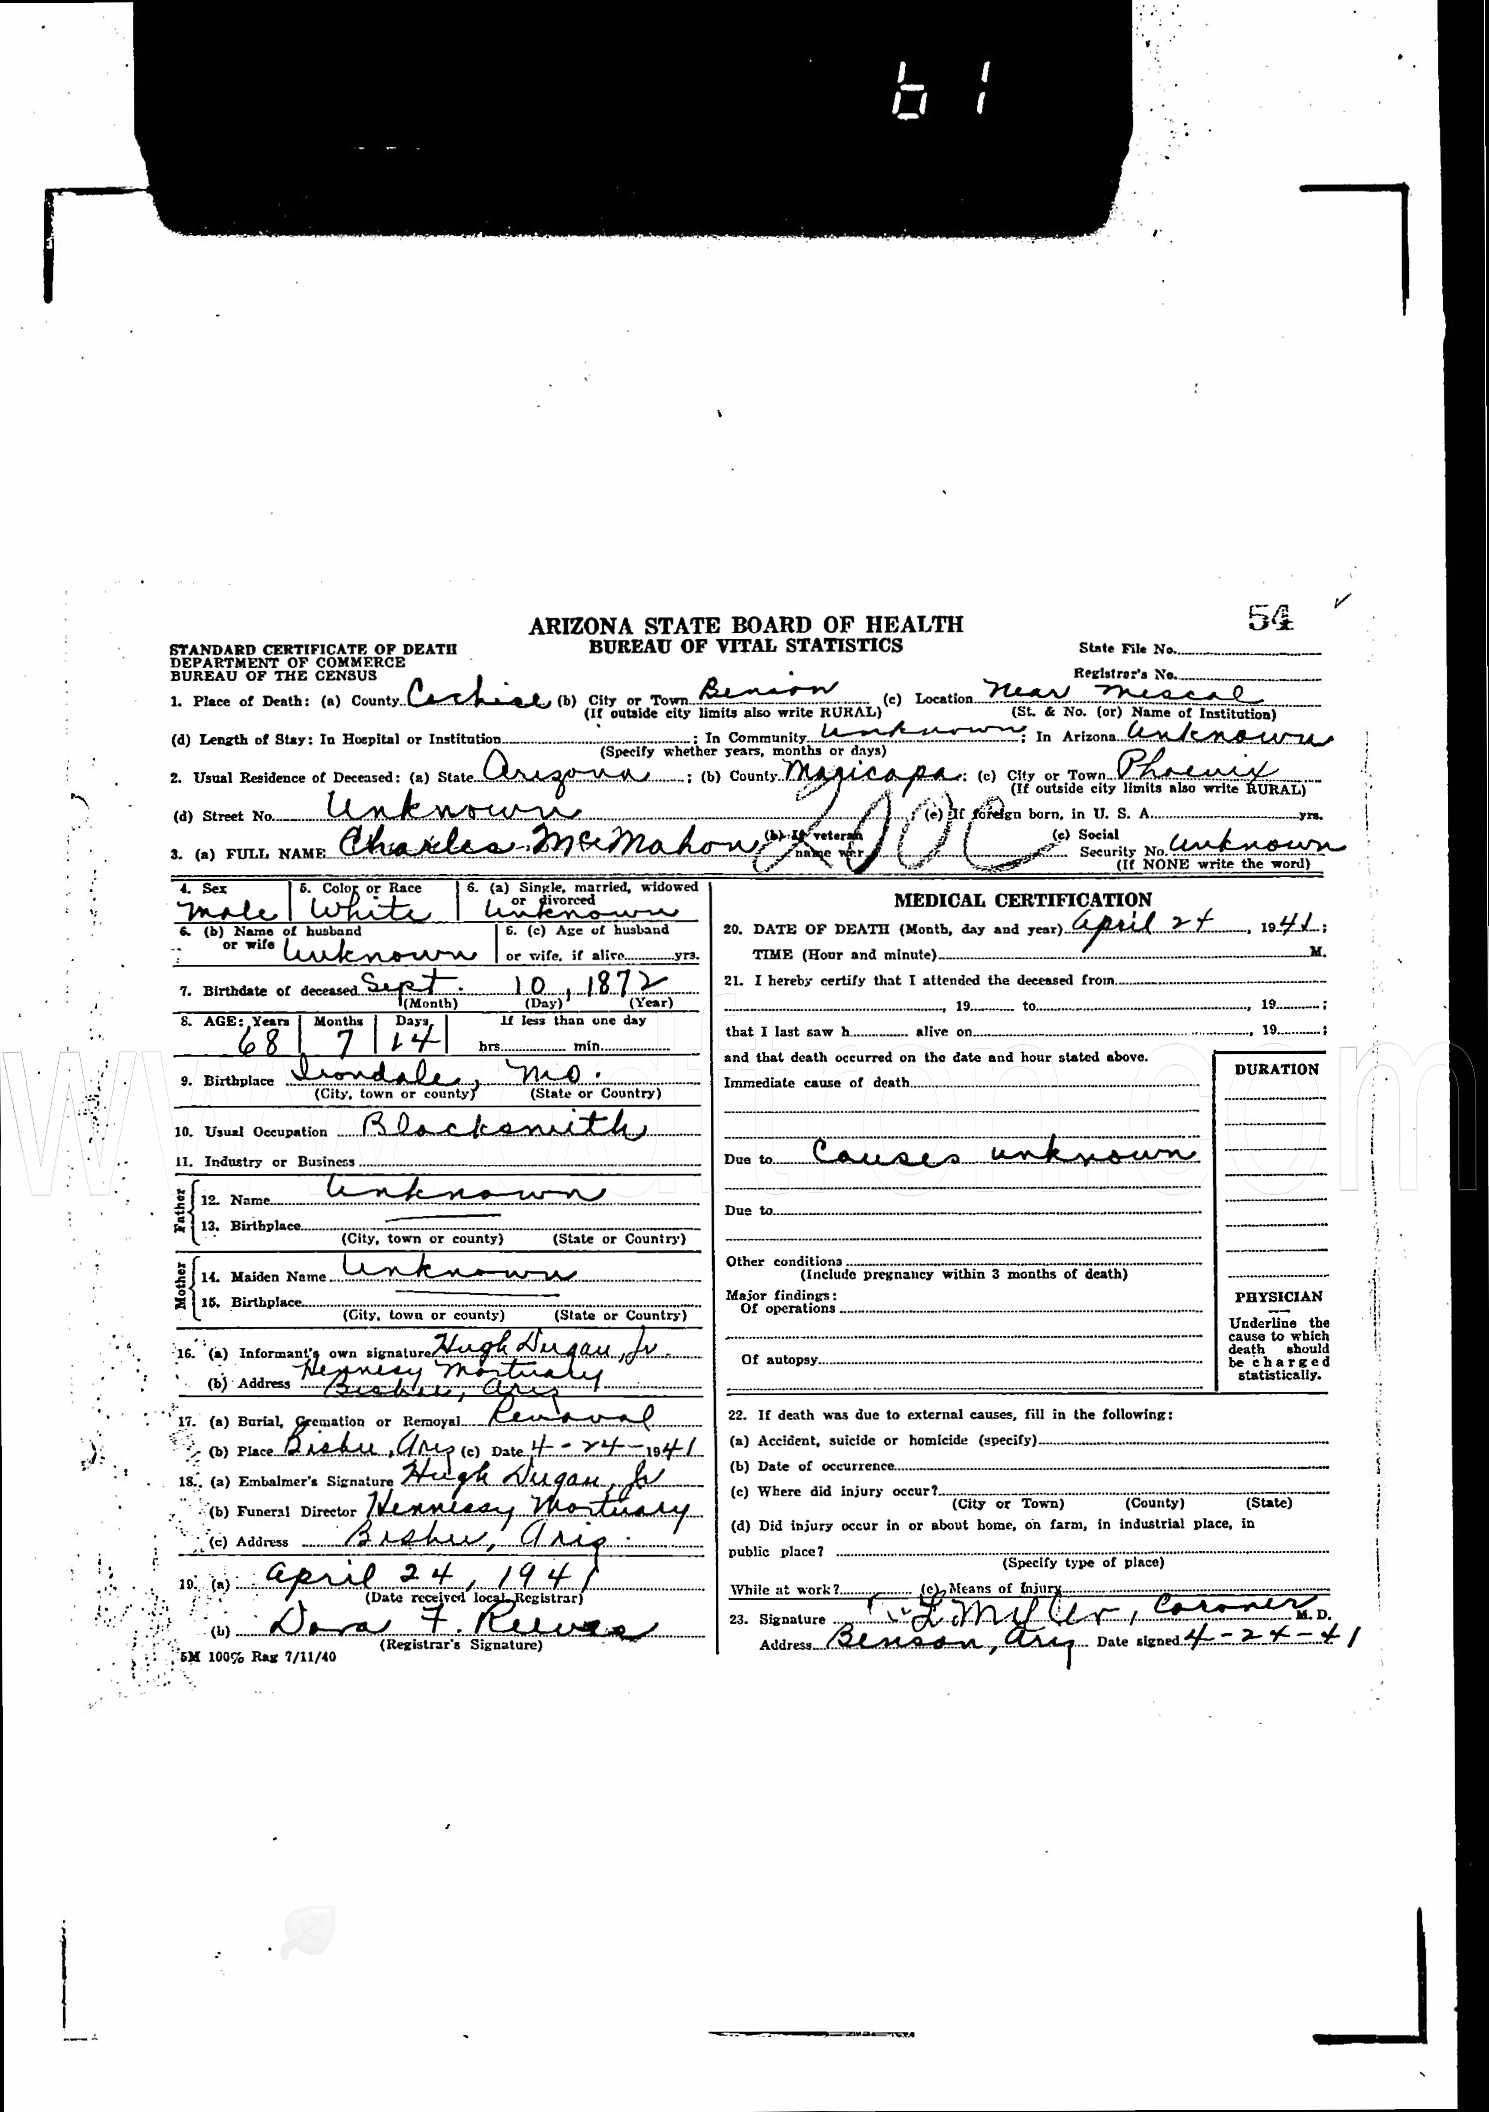 61
54
ARIZONA STATE BOARD OF HEALTH
BUREAU OF VITAL STATISTICS
STANDARD CERTIFICATE OF DEATH
DEPARTMENT OF COMMERCE
BUREAU OF THE CENSUS
State File No.
Registrar's No.
1. Place of Death: (a) County Cochise (b) City or Town Benson (c) Location Near Mescal
(If outside city limits also write RURAL) (St. & No. (or) Name of Institution)
(d) Length of Stay: In Hospital or Institution ; In Community Unknown ; In Arizona Unknown
(Specify whether years, months or days)
2. Usual Residence of Deceased: (a) State Arizona ; (b) County Maricopa ; (c) City or Town Phoenix
(If outside city limits also write RURAL)
(d) Street No. Unknown (e) If foreign born, in U. S. A. yrs.
3. (a) FULL NAME Charles McMahon (b) If veteran name war (c) Social Security No. Unknown
(If NONE write the word)
4. Sex Male 5. Color or Race White 6. (a) Single, married, widowed or divorced Unknown
6. (b) Name of husband or wife Unknown 6. (c) Age of husband or wife, if alive yrs.
7. Birthdate of deceased Sept. 10, 1872
(Month) (Day) (Year)
8. AGE: Years Months Days If less than one day
68 7 14 hrs. min.
9. Birthplace Irondale, Mo.
(City, town or county) (State or Country)
10. Usual Occupation Blacksmith
11. Industry or Business
Father
12. Name Unknown
13. Birthplace
(City, town or county) (State or Country)
Mother
14. Maiden Name Unknown
15. Birthplace
(City, town or county) (State or Country)
16. (a) Informant's own signature Hugh Dugan, Jr.
(b) Address Hennesy Mortuary
Bisbee, Ariz
17. (a) Burial, Cremation or Removal Removal
(b) Place Bisbee, Ariz (c) Date 4-24-1941
18. (a) Embalmer's Signature Hugh Dugan, Jr
(b) Funeral Director Hennessy Mortuary
(c) Address Bisbee, Ariz.
19. (a) April 24, 1941
(Date received local Registrar)
(b) Dora F. Reeves
(Registrar's Signature)
5M 100% Rag 7/11/40
MEDICAL CERTIFICATION
20. DATE OF DEATH (Month, day and year) April 24, 1941;
TIME (Hour and minute) M.
21. I hereby certify that I attended the deceased from
, 19 to , 19 ;
that I last saw h alive on , 19 ;
and that death occurred on the date and hour stated above.
Immediate cause of death
Due to Causes unknown
Due to
Other conditions
(Include pregnancy within 3 months of death)
Major findings:
Of operations
Of autopsy
DURATION
PHYSICIAN
Underline the
cause to which
death should
be charged
statistically.
22. If death was due to external causes, fill in the following:
(a) Accident, suicide or homicide (specify)
(b) Date of occurrence
(c) Where did injury occur?
(City or Town) (County) (State)
(d) Did injury occur in or about home, on farm, in industrial place, in
public place?
(Specify type of place)
While at work? (e) Means of Injury
23. Signature Miller, Coroner M. D.
Address Benson, Ariz Date signed 4-24-41